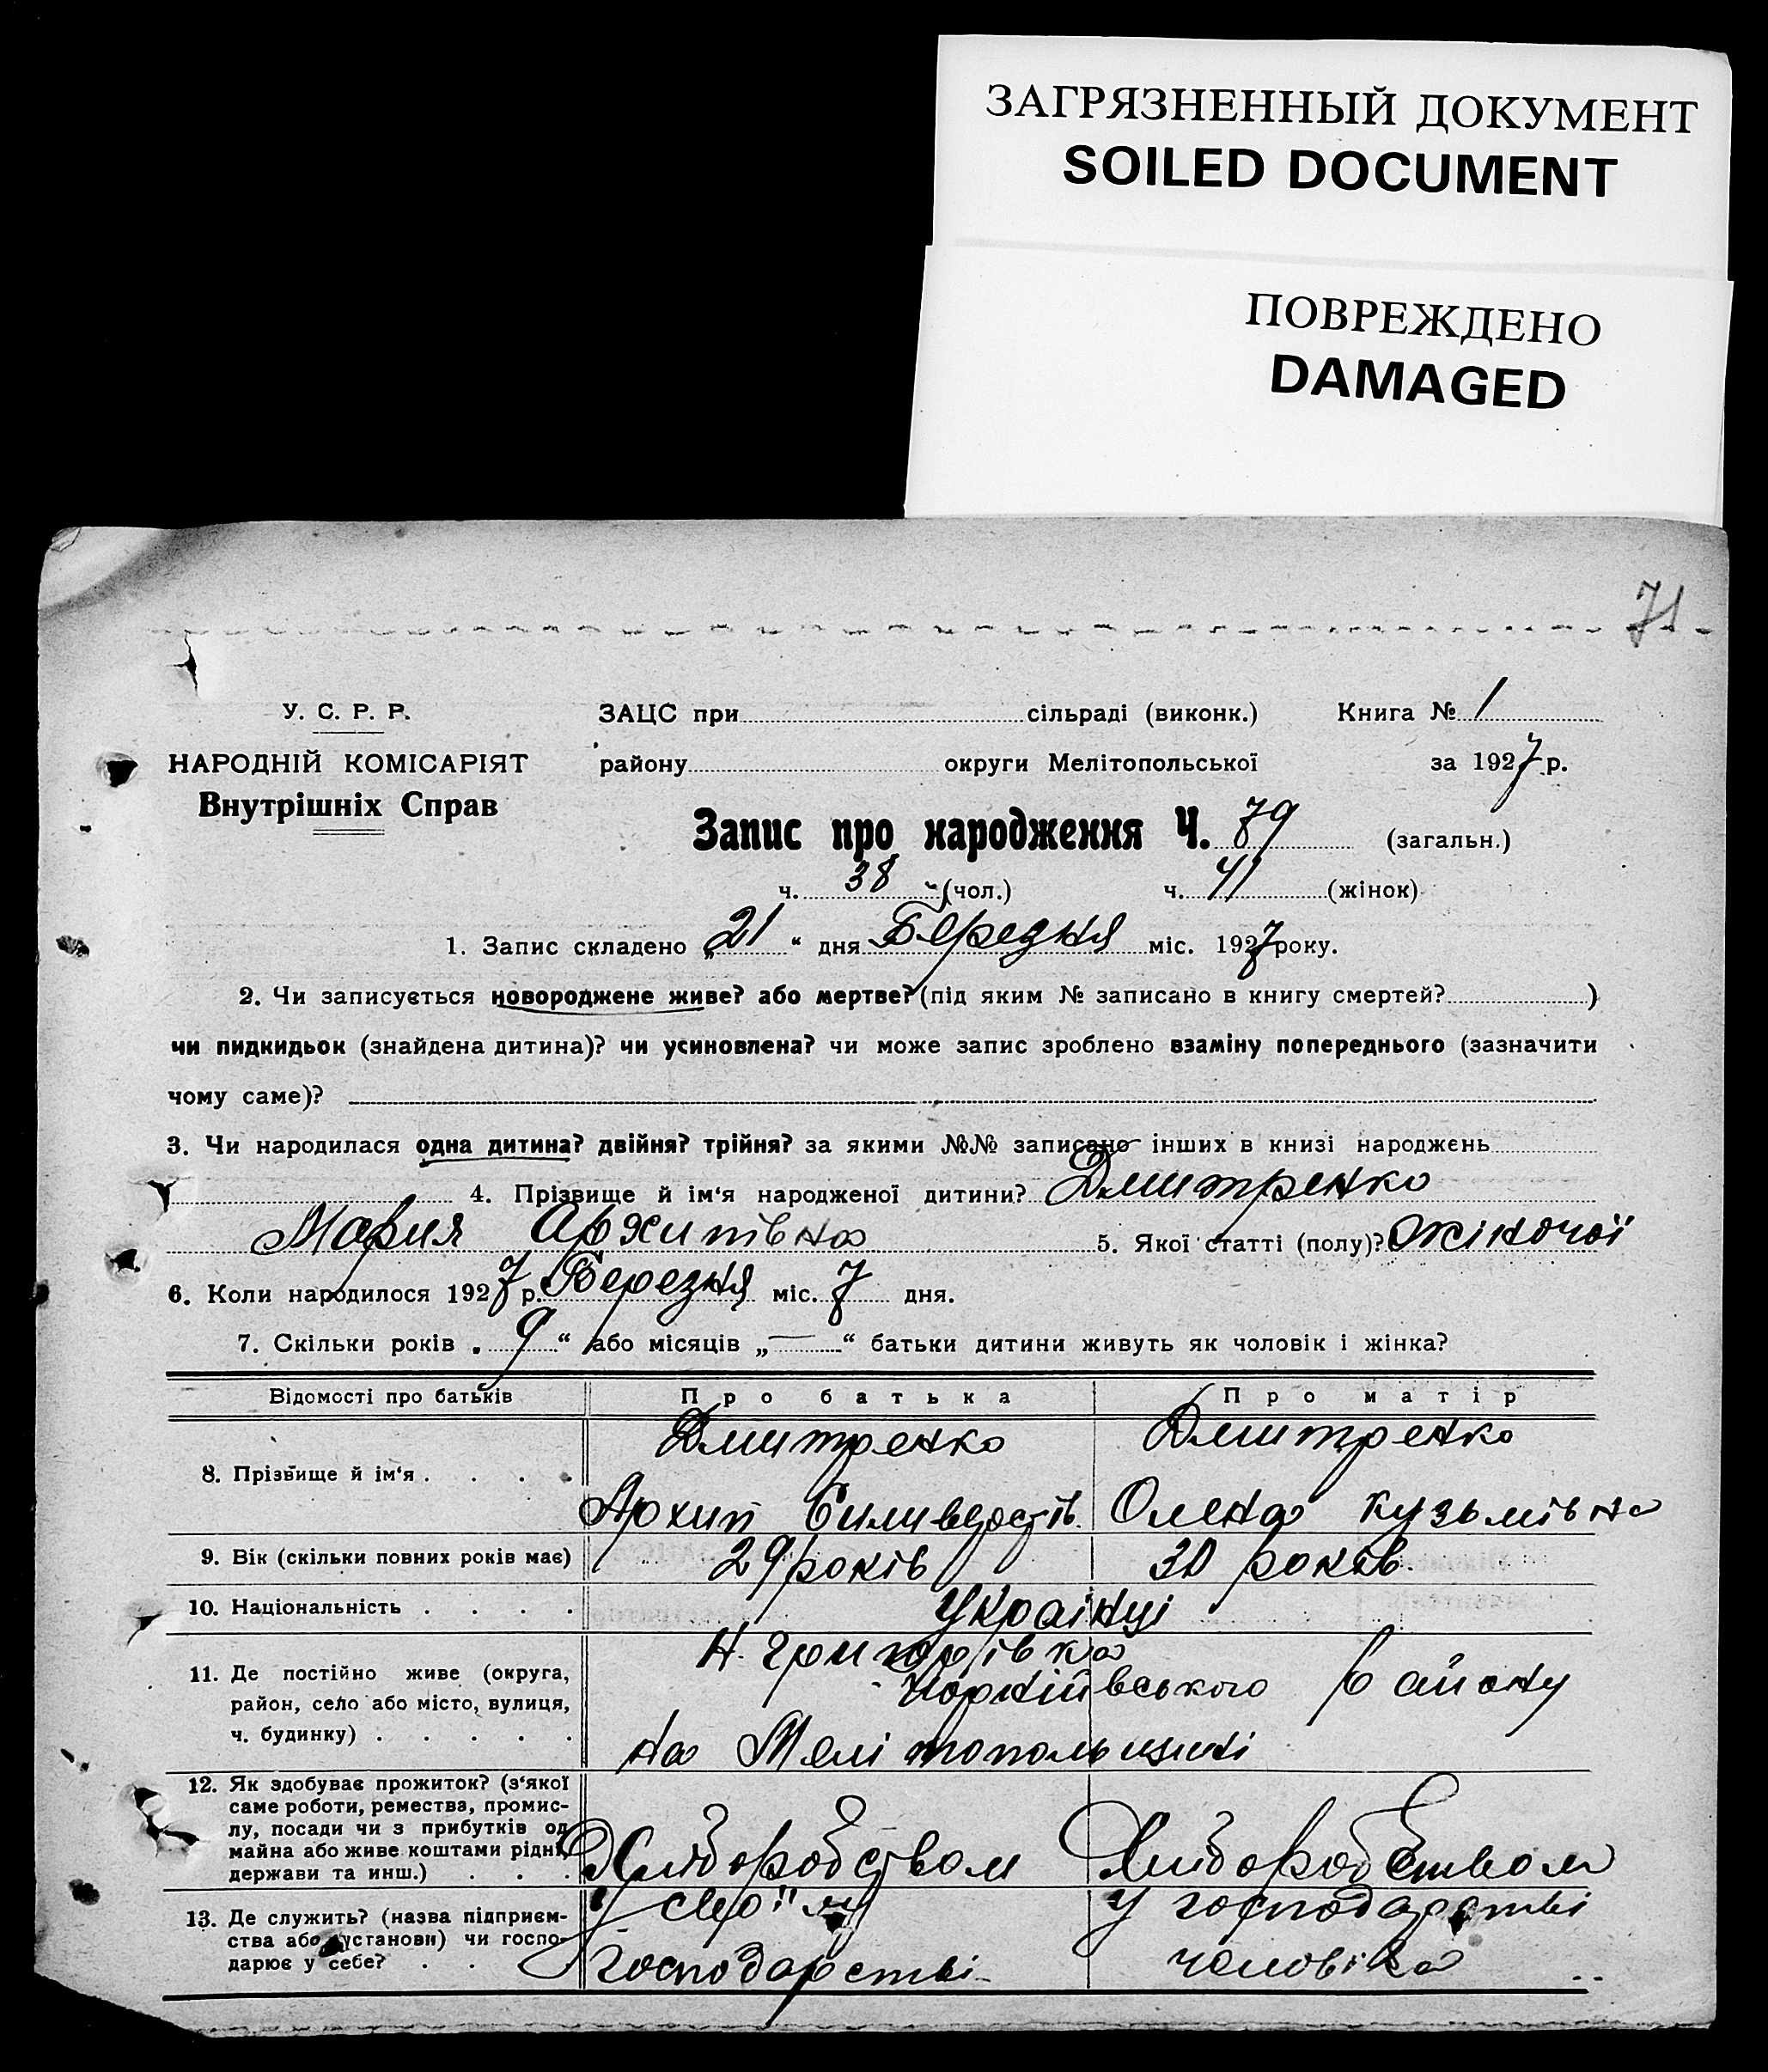 ЗАГРЯЗНЕННЫЙ ДОКУМЕНТ
SOILED DOCUMENT
ПОВРЕЖДЕНО
DAMAGED
71
У. С. Р. Р.
НАРОДНІЙ КОМІСАРІЯТ
Внутрішніх Справ
ЗАЦС при сільраді (виконк.) Книга № 1
району округи Мелітопольської за 1927 р.
Запис про народження Ч. 79 (загальн.)
ч. 38 (чол.) ч. 41 (жінок)
1. Запис складено „21“ дня Березня міс. 1927 року.
2. Чи записується новороджене живе? або мертве? (під яким № записано в книгу смертей? )
чи пидкидьок (знайдена дитина)? чи усиновлена? чи може запис зроблено взаміну попереднього (зазначити
чому саме)?
3. Чи народилася одна дитина? двійня? трійня? за якими №№ записано інших в книзі народжень
4. Прізвище й ім‘я народженої дитини? Дмитренко
Мария Архипівна 5. Якої статті (полу)? Жіночої
6. Коли народилося 1927 р. Березня міс. 7 дня.
7. Скільки років „9“ або місяців „—“ батьки дитини живуть як чоловік і жінка?
Відомості про батьків Про батька Про матір
8. Прізвище й ім‘я . . . . Дмитренко Дмитренко
Архип Силиверстів. Олена Кузьмівна
9. Вік (скільки повних років має) 29 років 30 років.
10. Національність . . . . Українці
11. Де постійно живе (округа,
район, село або місто, вулиця,
ч. будинку) . . . . .
Н. Григорівка
вського району
на Мелітопольщині
12. Як здобуває прожиток? (з‘якої
саме роботи, ремества, промис-
лу, посади чи з прибутків од
майна або живе коштами рідні,
держави та инш.) . . .
Хліборобством Хліборобством
13. Де служить? (назва підприєм-
ства або установи) чи госпо-
дарює у себе? . . .
у своїму
господарстві
у господарстві
чоловіка